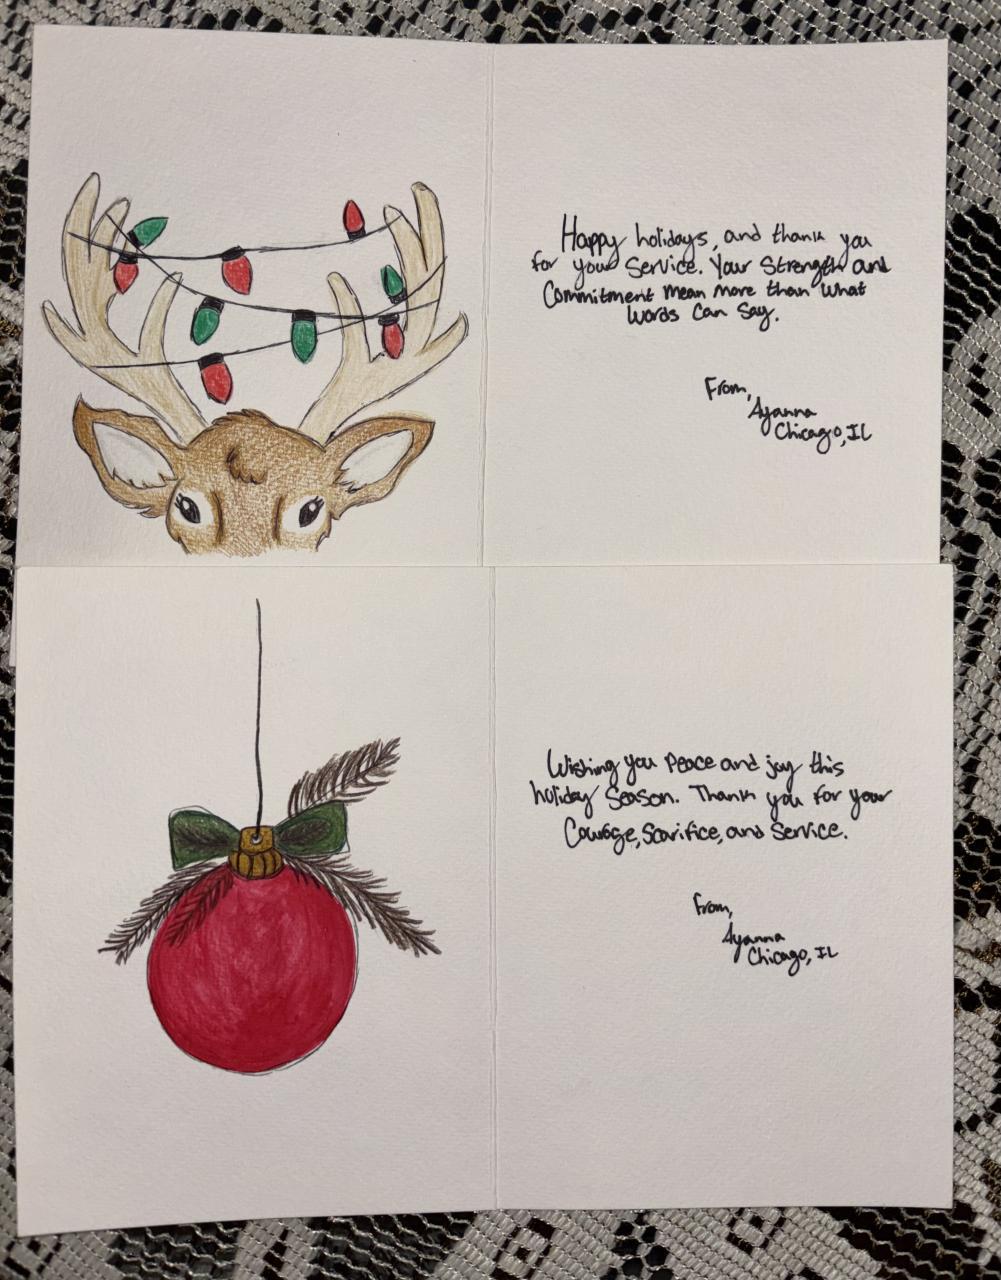 Happy holidays, and thank you
for your Service. Your Strength and
Commitment mean more than what
words can say.
From,
Ayanna
Chicago, IL
Wishing you peace and joy this
holiday season. Thank you for your
Courage, Sacrifice, and Service.
From,
Ayanna
Chicago, IL